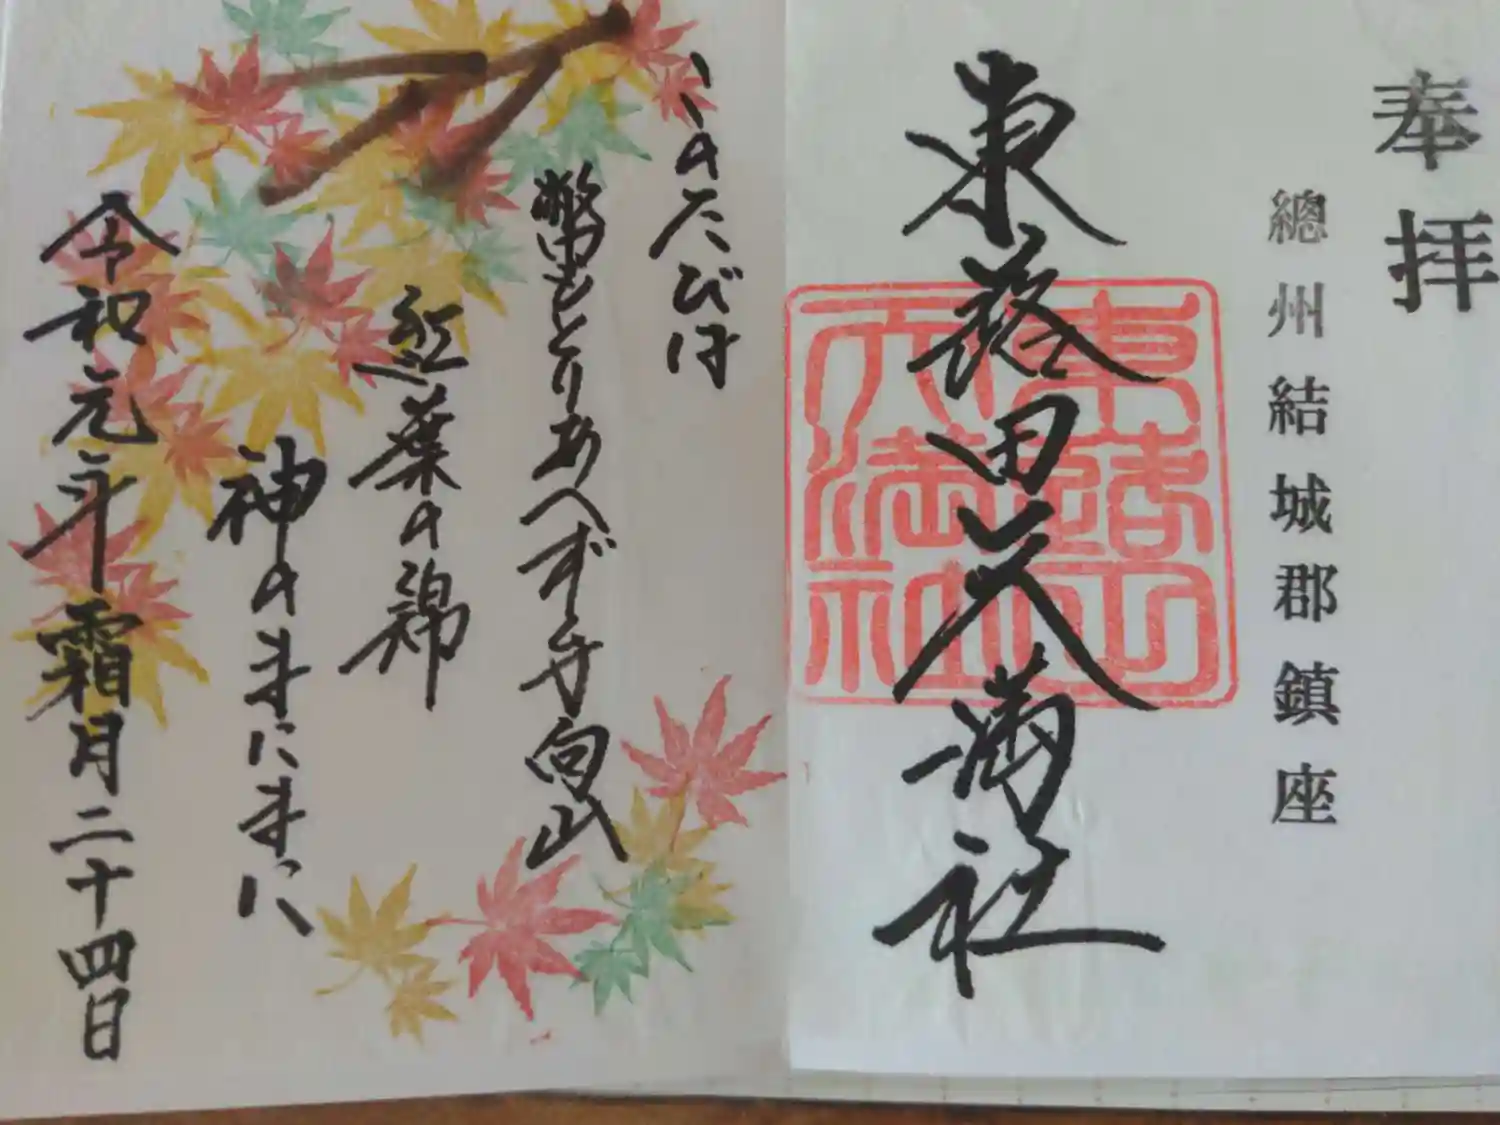 奉拝
總州結城郡鎮座
東蕗田天満社
東蕗田
天満社
このたびは
幣もとりあへず手向山
紅葉の錦
神のまにまに
令和元年霜月二十四日